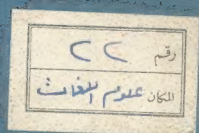 رقم ٢٢
المكان علوم اللغات